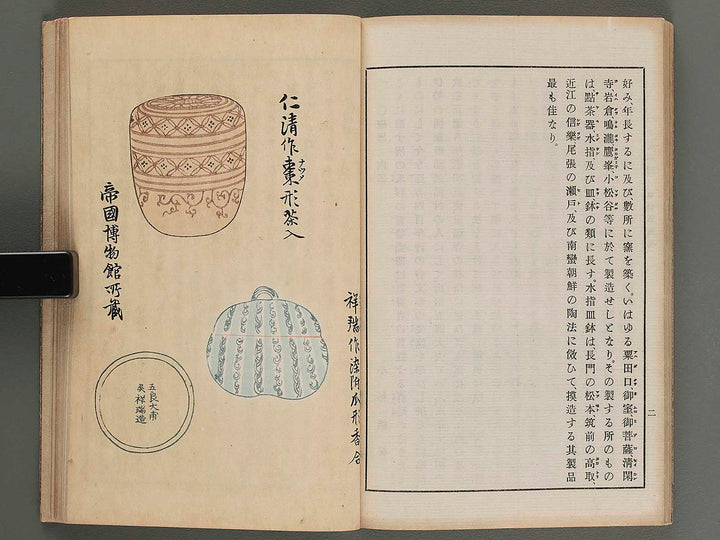 好み、年長するに及び數所に窯を築く、いはゆる粟田口、御室、御菩薩、清閑
寺、岩倉、鳴瀧、鷹峯、小松谷等に於て製造せしとなり。その製する所のもの
は點茶器、水指及び皿鉢の類に長す。水指皿鉢は長門の松本、筑前の高取、
近江の信樂、尾張の瀬戸、及び南蠻朝鮮の陶法に倣ひて、摸造する其製品
最も佳なり。
二
仁清作棗形茶入
ナツメ
帝國博物館所藏
祥瑞作染附瓜形香合
五良大甫
呉祥瑞造